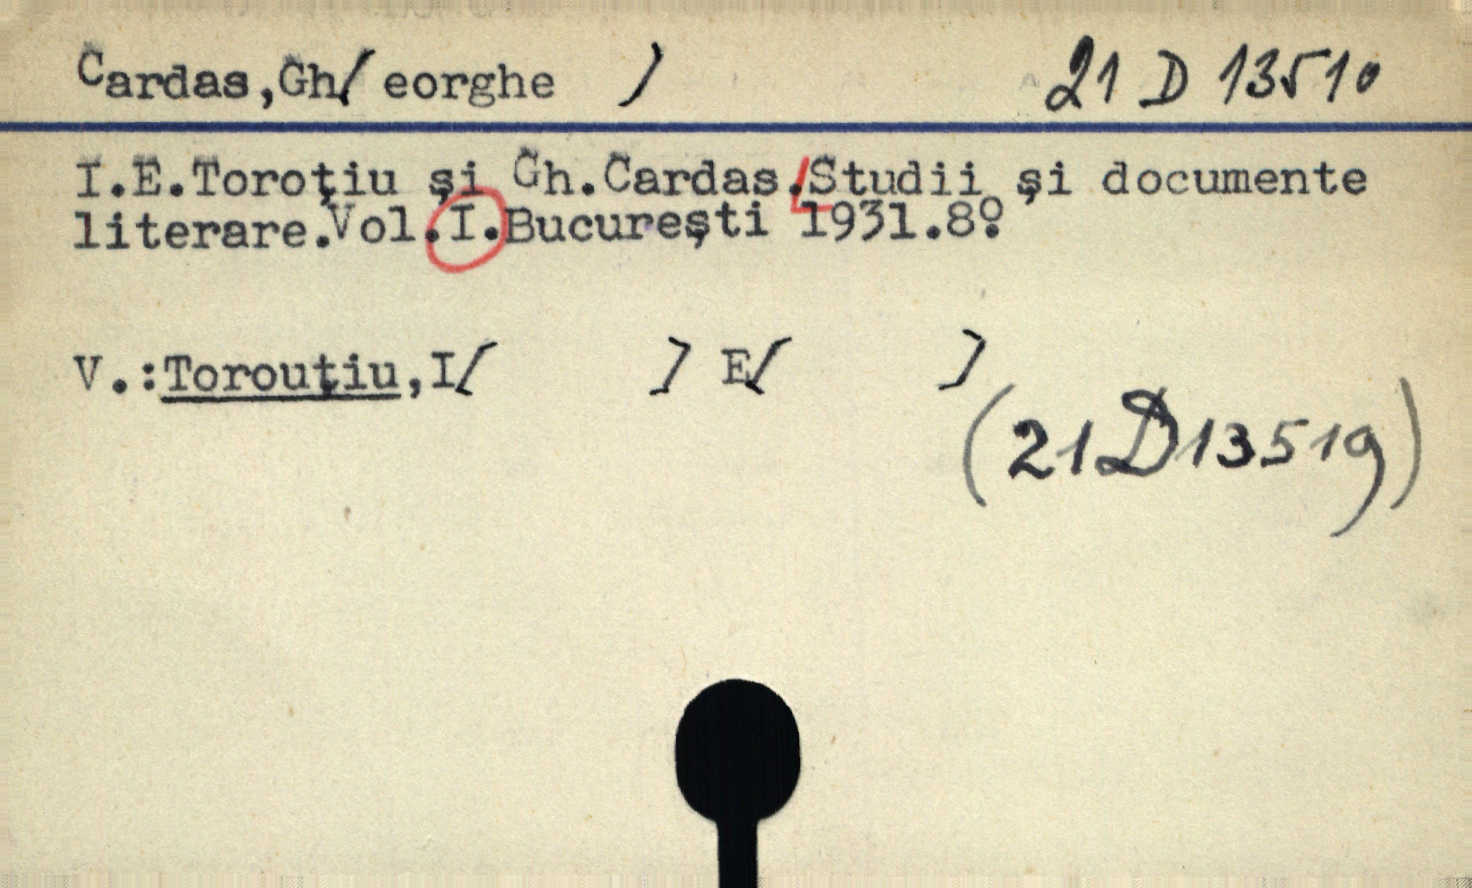 Cardas,Gh/ eorghe ) 21 D 13510
I.E.Toroţiu şi Gh.Cardas.Studii şi documente
literare.Vol.I.Bucureşti 1931.8º
V.:Torouţiu,I[ ] E[ ]
(21D13519)